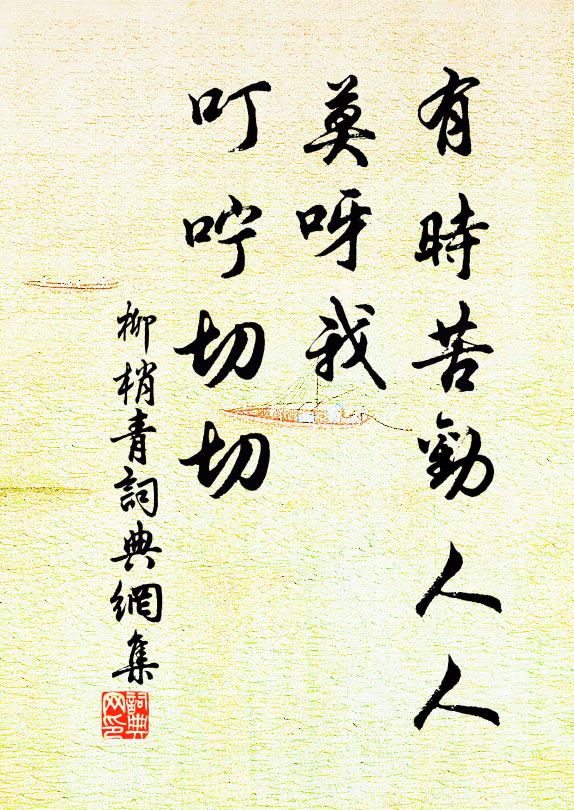 有時苦勸人人
莫呀我
叮咛切切
柳梢青詞典網集
詞典網印